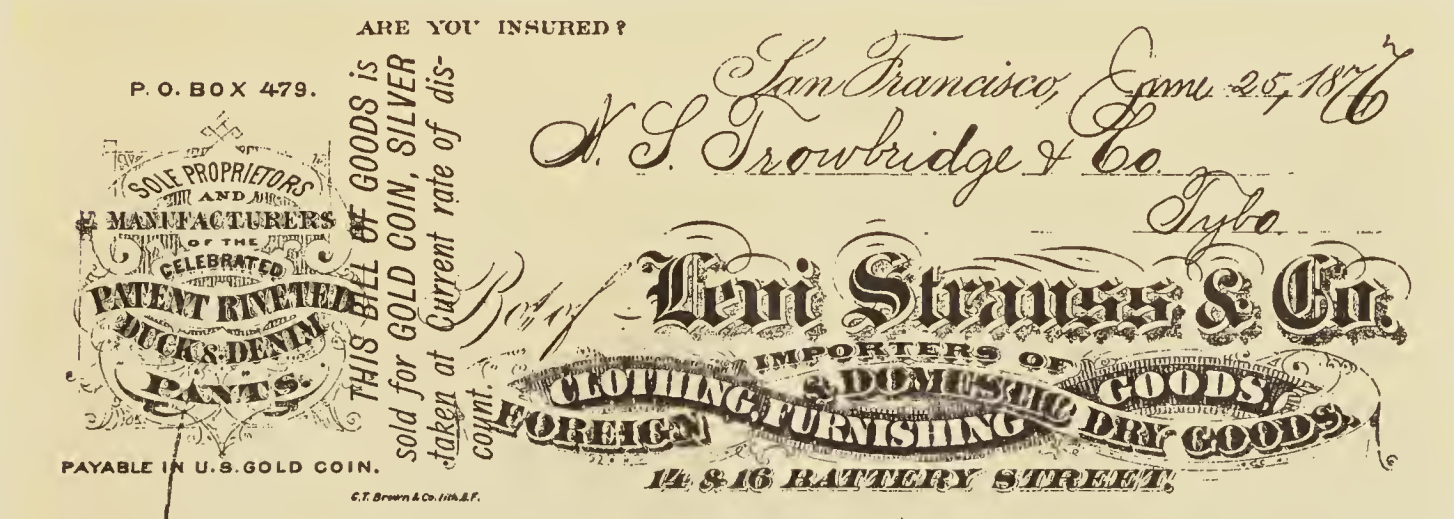 ARE YOU INSURED?
P. O. BOX 479.
SOLE PROPRIETORS
AND
MANUFACTURERS
OF THE
CELEBRATED
PATENT RIVETED
DUCK & DENIM
PANTS.
PAYABLE IN U.S. GOLD COIN.
THIS BILL OF GOODS is
sold for GOLD COIN, SILVER
taken at Current rate of dis-
count.
C.T. Brown & Co. lith. S.F.
San Francisco, June 25, 1876
N. S. Trowbridge & Co.
Tybo
Bot of Levi Strauss & Co.
IMPORTERS OF
CLOTHING, FURNISHING GOODS,
FOREIGN & DOMESTIC DRY GOODS.
14 & 16 BATTERY STREET.